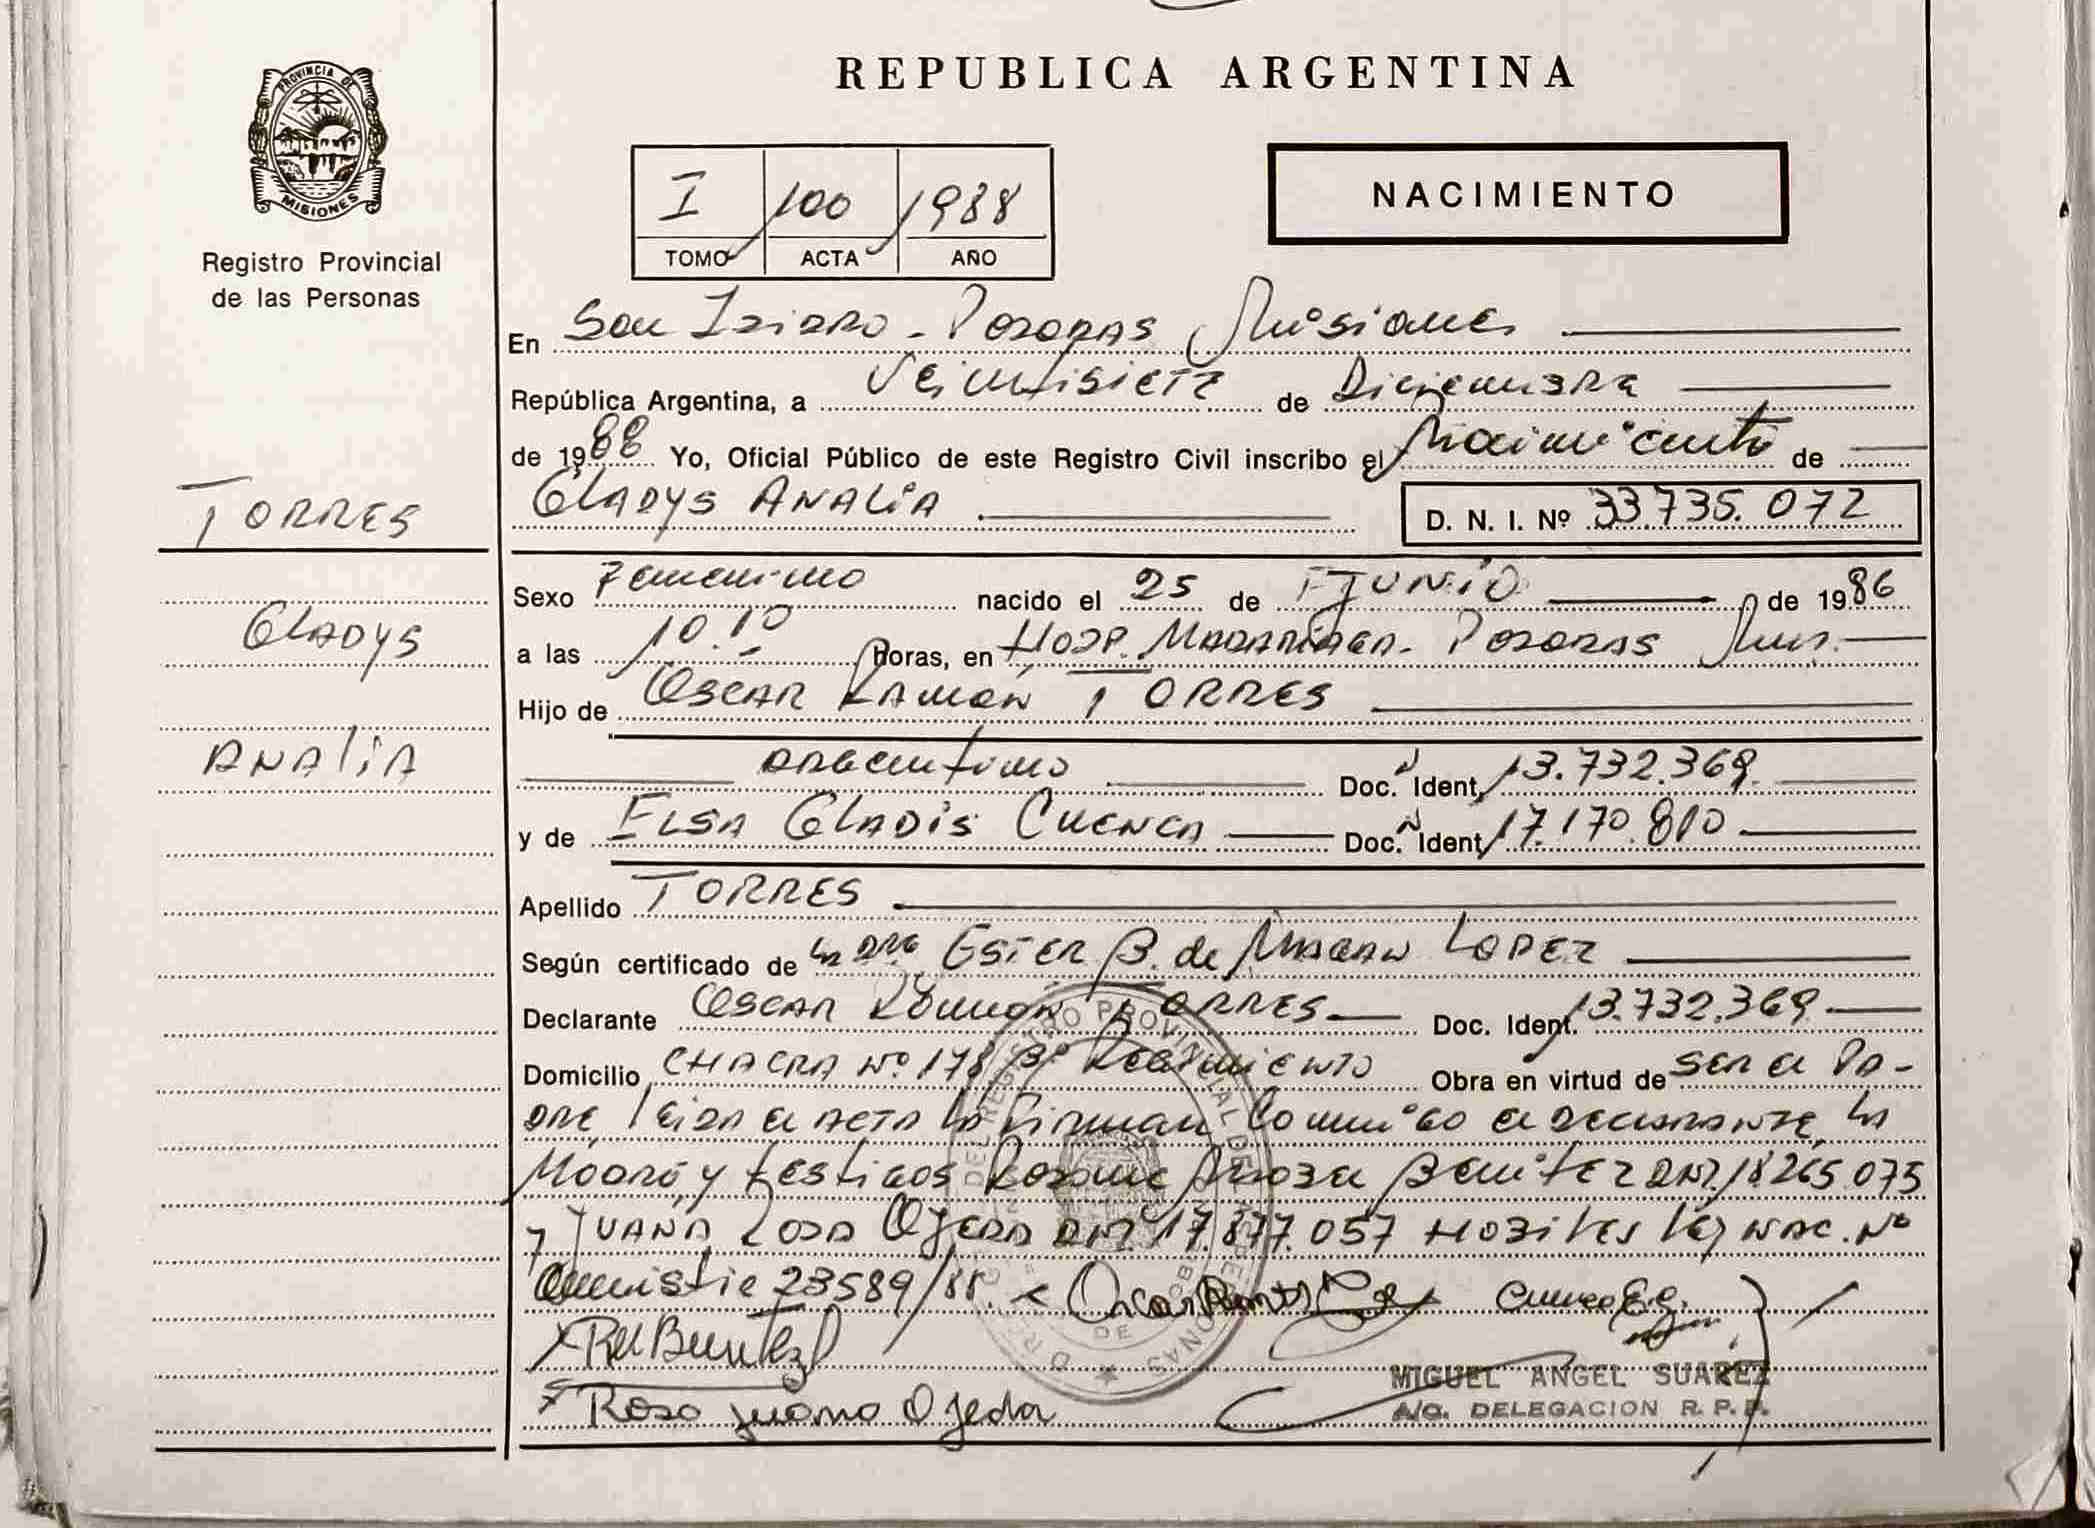 PROVINCIA DE
MISIONES
Registro Provincial
de las Personas
TORRES
Gladys
Analia
REPUBLICA ARGENTINA
I 100 1988
TOMO ACTA AÑO
NACIMIENTO
En San Isidro - Posadas Misiones
República Argentina, a Veintisiete de Diciembre
de 1988 Yo, Oficial Público de este Registro Civil inscribo el Nacimiento de
Gladys Analia D. N. I. Nº 33.735.072
Sexo Femenino nacido el 25 de JUNIO de 1986
a las 10.10 horas, en Hosp. Madariaga - Posadas Mis.
Hijo de Oscar Ramón TORRES
argentino Doc. Ident. 13.732.369
y de Elsa Gladis Cuenca Doc. Ident. 17.170.810
Apellido TORRES
Según certificado de la Dra. Ester B. de López
Declarante Oscar Ramon TORRES Doc. Ident. 13.732.369
Domicilio CHACRA Nº 178 Bº Regimiento Obra en virtud de ser el Pa-
dre, leida el acta la firman conmigo el declarante, la
Madre y testigos Benitez DNI. 18.265.075
y Juana Rosa Ojeda DNI. 17.877.057 Habiles Ley Nac. Nº
Amnistia 23589/88. Cuenca E.G.
Benitez
Rosa Juana Ojeda
MIGUEL ANGEL SUAREZ
A/C. DELEGACION R. P. P.